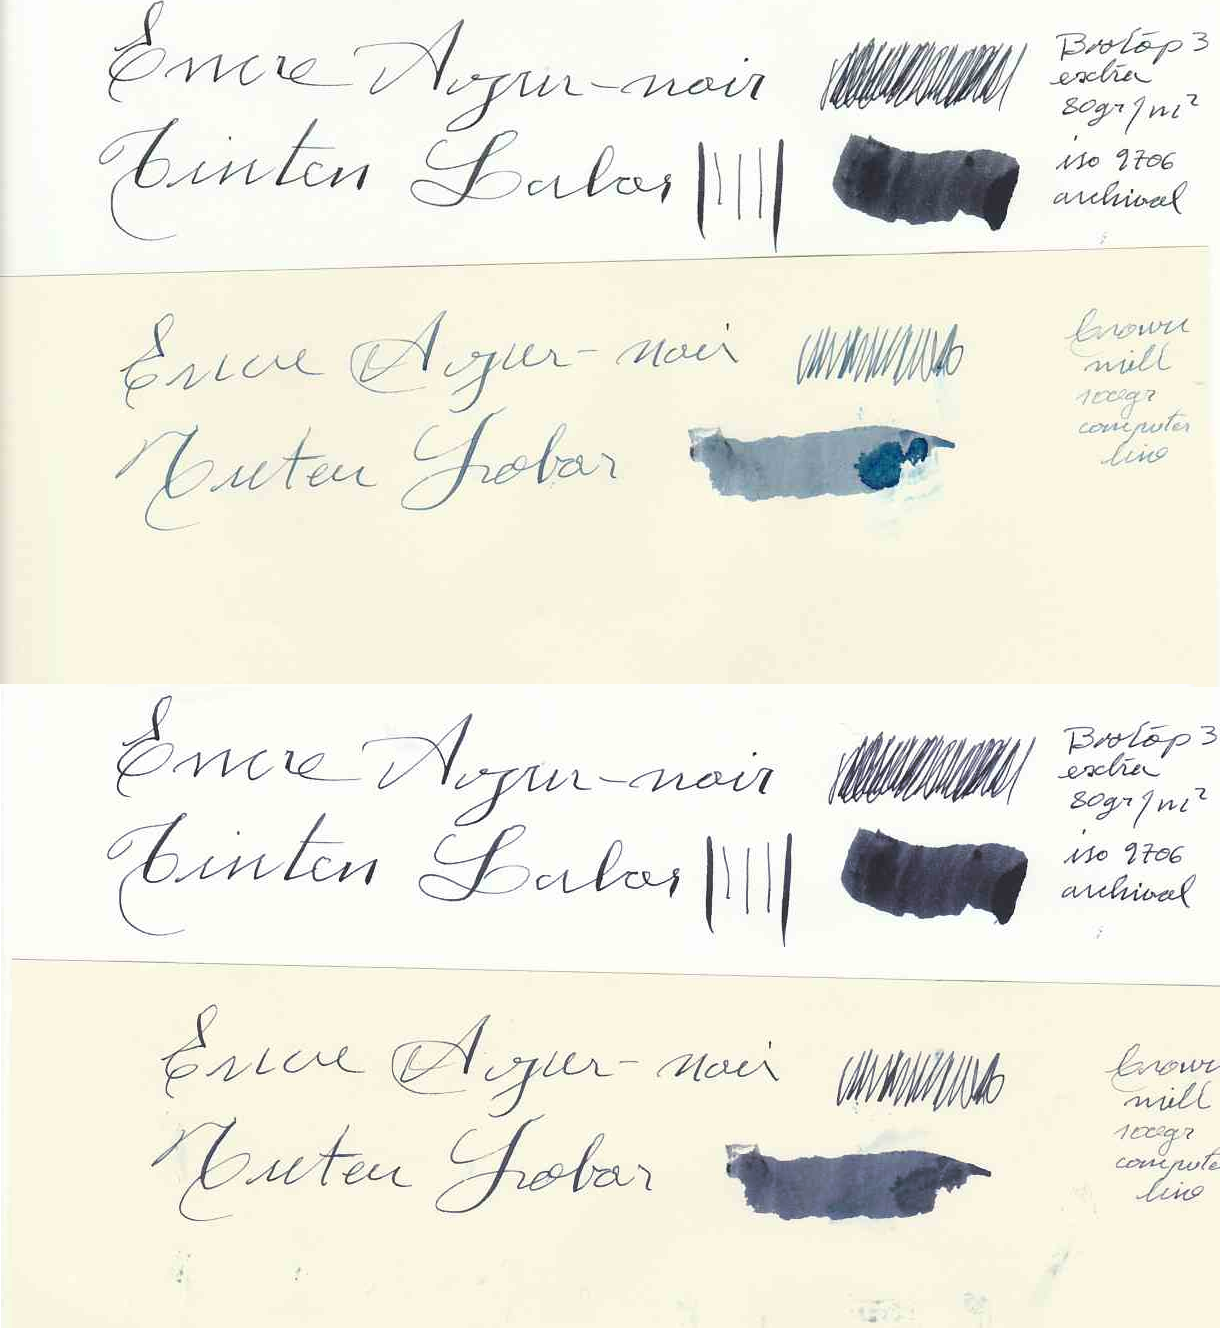 Encre Azur-noir
Tinten Labor
Biotop 3
extra
80gr/m²
iso 9706
archival
Encre Azur-noir
Tinten Labor
crown
mill
100gr
computer
line
Encre Azur-noir
Tinten Labor
Biotop 3
extra
80gr/m²
iso 9706
archival
Encre Azur-noir
Tinten Labor
crown
mill
100gr
computer
line